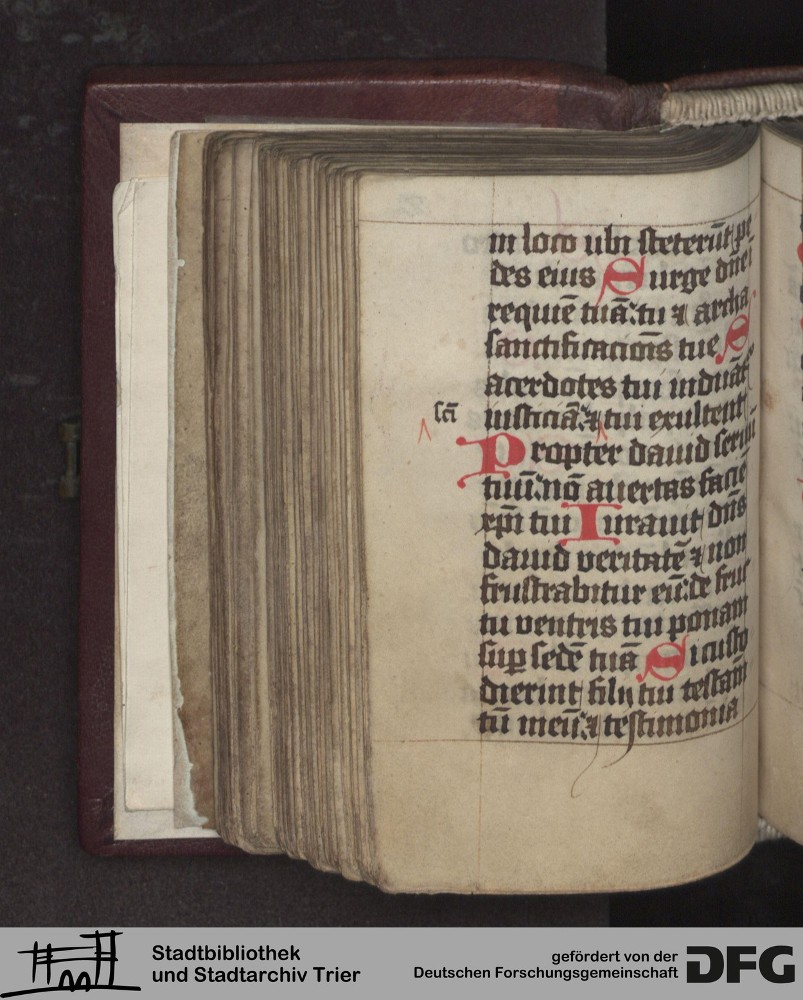 in loco ubi steterūt pe
des eius Surge dn̄e ī
requiē tuā: tu ⁊ archa
sanctificacōis tue S
acerdotes tui induāt᷑
scī
iusticiā: ⁊ tui exultent
Propter dauid seruū
tuū: nō auertas faciē
xp̄i tui Iurauit dn̄s
dauid veritatē ⁊ non
frustrabitur eū: de fruc
tu ventris tui ponam
suꝑ sedē tuā Si custo
dierint filij tui testam̄
tū meū: ⁊ testimonia
Stadtbibliothek
und Stadtarchiv Trier
gefördert von der
Deutschen Forschungsgemeinschaft
DFG